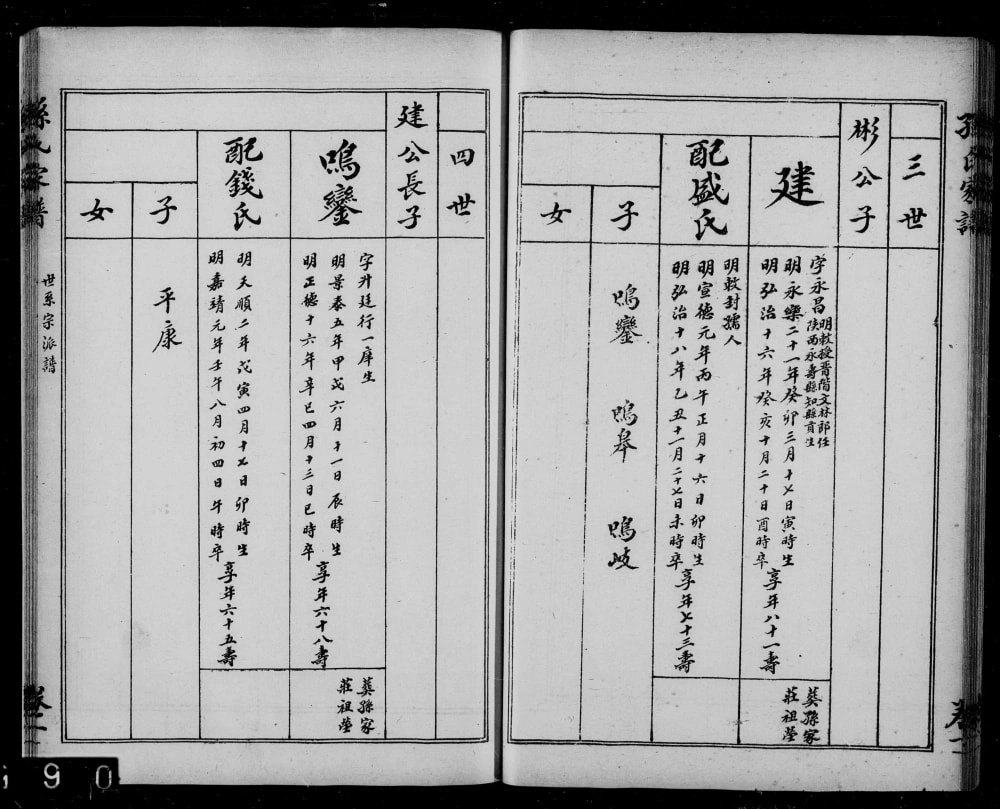 孫氏家譜
卷二
三世
彬公子
建
字永昌
明敕授晋階文林郎任
陝西永壽縣知縣貢生
明永樂二十一年癸卯三月十七日寅時生
明弘治十六年癸亥十月二十日酉時卒
享年八十一壽
葬孫家
莊祖塋
配盛氏
明敕封孺人
明宣德元年丙午正月十六日卯時生
明弘治十八年乙丑十一月二十七日未時卒
享年七十三壽
子
鳴鑾
鳴皋
鳴岐
女
四世
建公長子
鳴鑾
字升廷行一庠生
明景泰五年甲戌六月十一日辰時生
明正德十六年辛巳四月十三日巳時卒
享年六十八壽
葬孫家
莊祖塋
配錢氏
明天順二年戊寅四月十七日卯時生
明嘉靖元年壬午八月初四日午時卒
享年六十五壽
子
平康
女
孫氏家譜
世系宗派譜
卷二
690